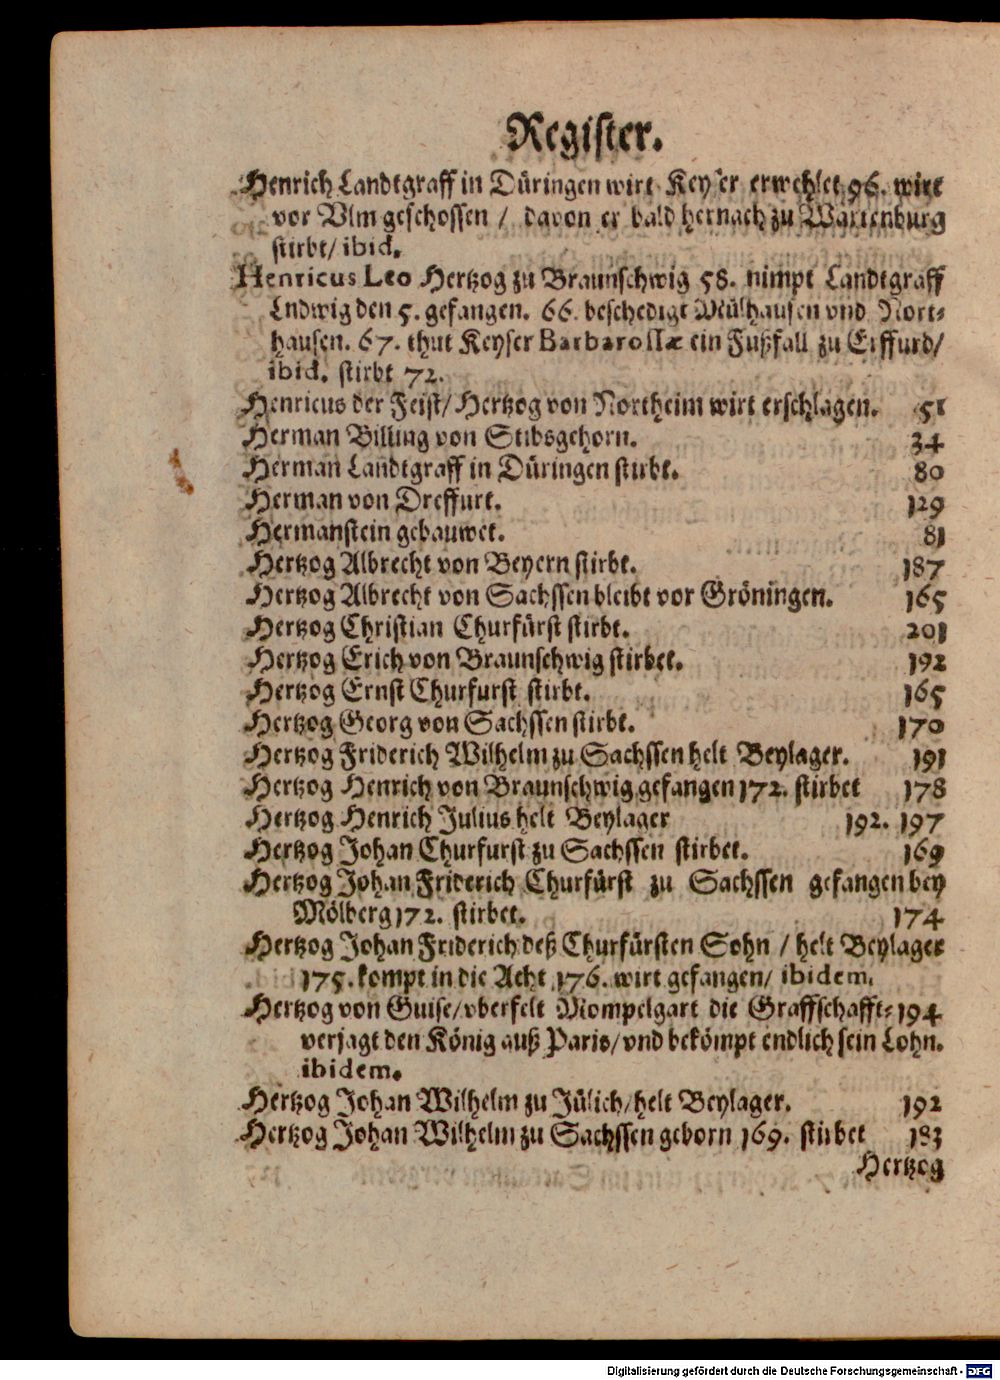 Register.
Henrich Landtgraff in Düringen wirt Keyser erwehlet 96. wirt
vor Vlm geschossen / davon er bald hernach zu Wartenburg
stirbt/ ibid.
Henricus Leo Hertzog zu Braunschwig 58. nimpt Landtgraff
Lndwig den 5. gefangen. 66. beschedigt Mülhausen vnd Nort-
hausen. 67. thut Keyser Barbarossæ ein Fußfall zu Erffurd/
ibid. stirbt 72.
Henricus der Feist/ Hertzog von Northeim wirt erschlagen. 51
Herman Billing von Stibsgehorn. 34
Herman Landtgraff in Düringen stirbt. 80
Herman von Dreffurt. 129
Hermanstein gebauwet. 81
Hertzog Albrecht von Beyern stirbt. 187
Hertzog Albrecht von Sachssen bleibt vor Gröningen. 165
Hertzog Christian Churfürst stirbt. 201
Hertzog Erich von Braunschwig stirbet. 192
Hertzog Ernst Churfurst stirbt. 165
Hertzog Georg von Sachssen stirbt. 170
Hertzog Friderich Wilhelm zu Sachssen helt Beylager. 191
Hertzog Henrich von Braunschwig gefangen 172. stirbet 178
Hertzog Henrich Julius helt Beylager 192. 197
Hertzog Johan Churfurst zu Sachssen stirbet. 169
Hertzog Johan Friderich Churfürst zu Sachssen gefangen bey
Mölberg 172. stirbet. 174
Hertzog Johan Friderich deß Churfürsten Sohn / helt Beylager
175. kompt in die Acht 176. wirt gefangen/ ibidem.
Hertzog von Guise/ vberfelt Mompelgart die Graffschafft- 194
verjagt den König auß Paris/ vnd bekömpt endlich sein Lohn.
ibidem.
Hertzog Johan Wilhelm zu Jülich/ helt Beylager. 192
Hertzog Johan Wilhelm zu Sachssen geborn 169. stirbet 183
Hertzog
Digitalisierung gefördert durch die Deutsche Forschungsgemeinschaft - DFG